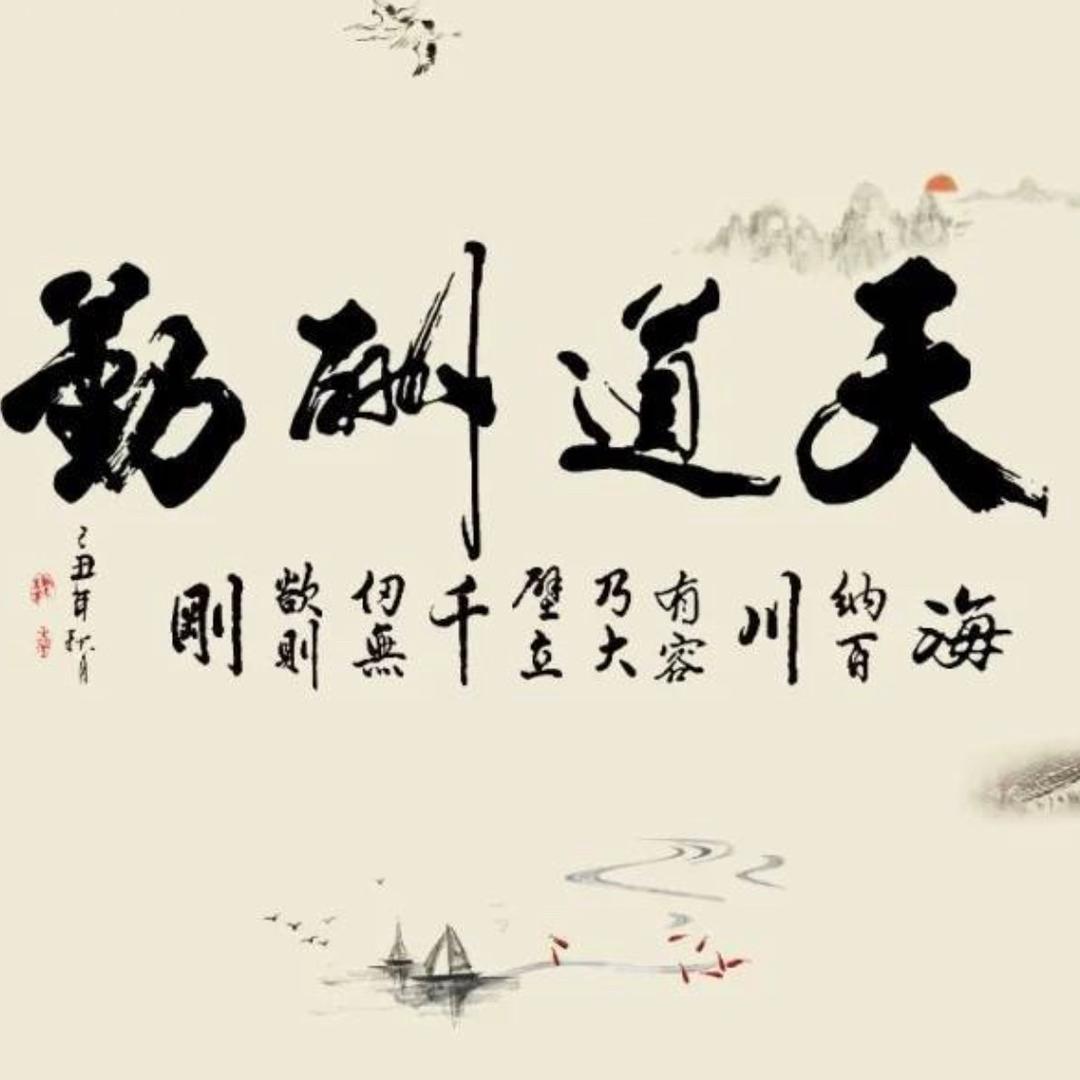 天道酬勤
海納百川有容乃大壁立千仞無欲則剛
己丑年秋月